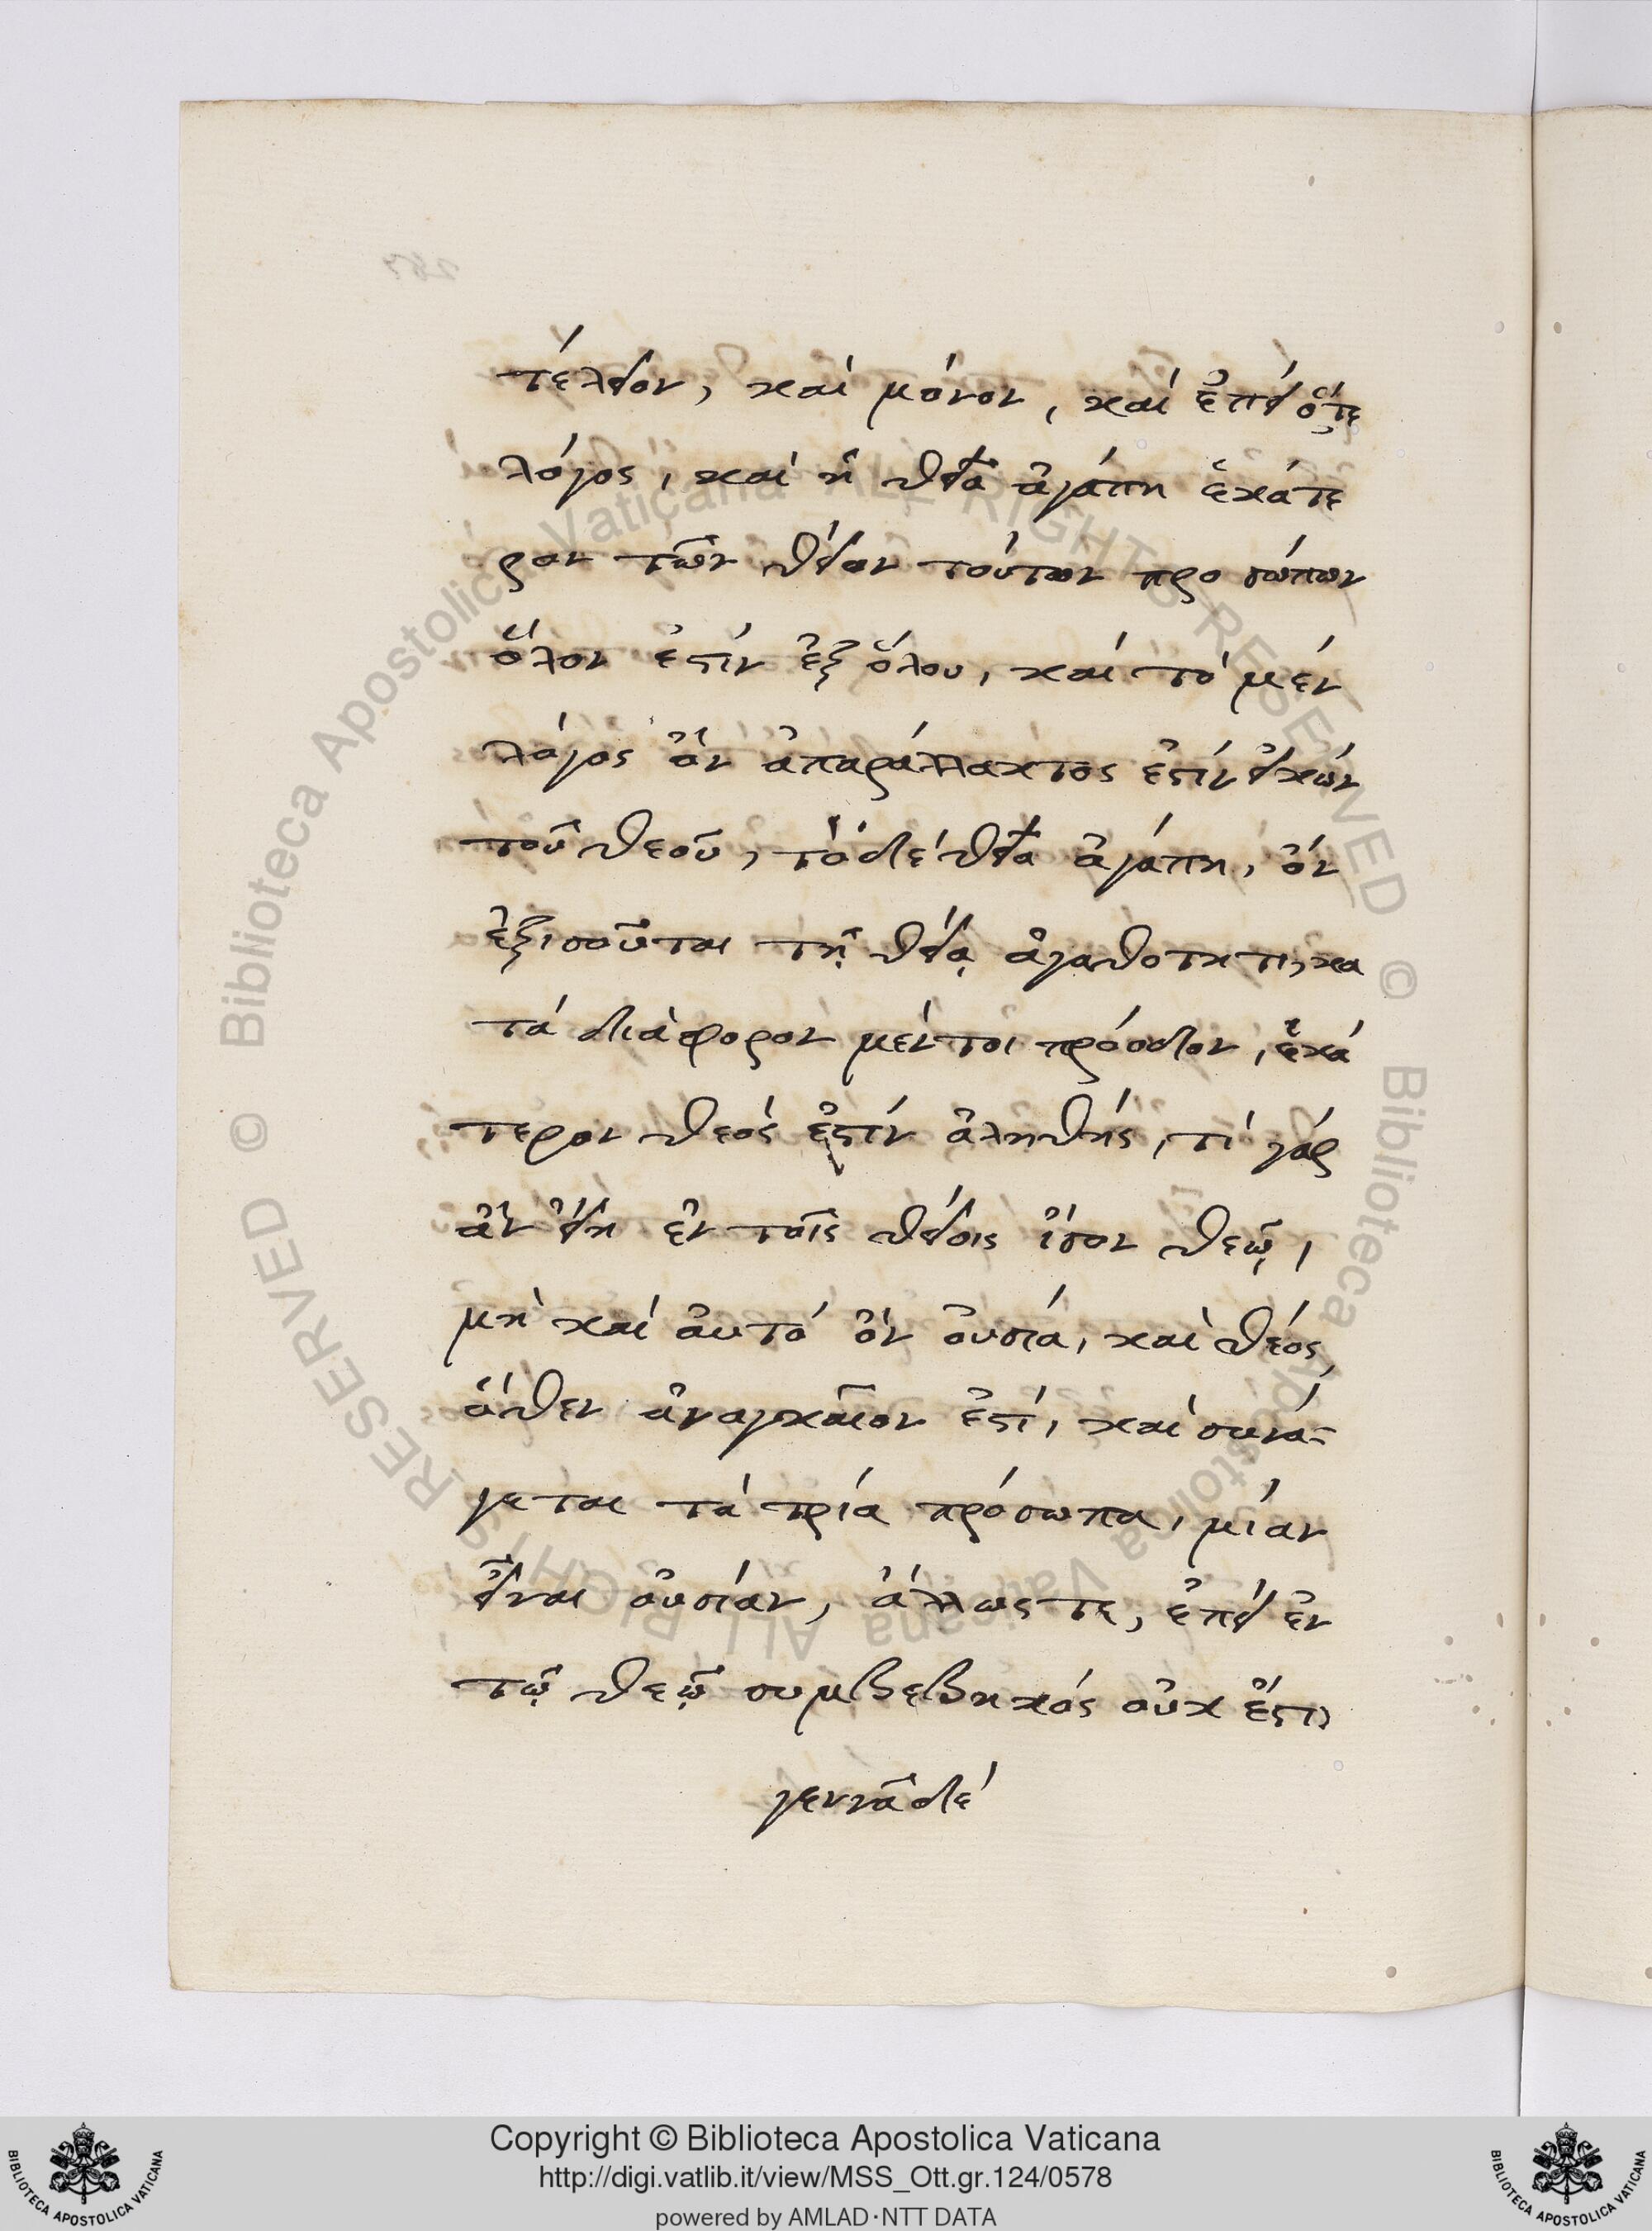 τέλειον, καὶ μόνον, καὶ ἐπεὶ ὅτε
λόγος, καὶ ἡ θεία ἀγάπη ἑκάτε
ρον τῶν θείων τούτων προσώπων
ὅλον ἐστὶν ἐξ ὅλου, καὶ τὸ μὲν
λόγος ὂν ἀπαράλλακτος ἐστὶν εἰκών
τοῦ θεοῦ, τὸ δὲ θεία ἀγάπη, ὂν
ἐξισοῦται τῇ θείᾳ ἀγαθότητι, κα
τὰ διάφορον μέντοι πρόοδον, ἑκά
τερον θεός ἐστὶν ἀληθής, τί γάρ
ἂν εἴη ἐν τοῖς θείοις ἴσον θεῷ,
μὴ καὶ αὐτὸ ὂν οὐσία, καὶ θεός,
ὅθεν ἀναγκαῖον ἐστί, καὶ συνά-
γεται τὰ τρία πρόσωπα, μίαν
εἶναι οὐσίαν, ἄλλως τε, ἐπεὶ ἐν
τῷ θεῷ συμβεβηκός οὐκ ἔστι,
γεννᾶ δὲ
Copyright © Biblioteca Apostolica Vaticana
http://digi.vatlib.it/view/MSS_Ott.gr.124/0578
powered by AMLAD·NTT DATA
BIBLIOTECA APOSTOLICA VATICANA
BIBLIOTECA APOSTOLICA VATICANA
© Biblioteca Apostolica Vaticana ALL RIGHTS RESERVED
© Biblioteca Apostolica Vaticana ALL RIGHTS RESERVED